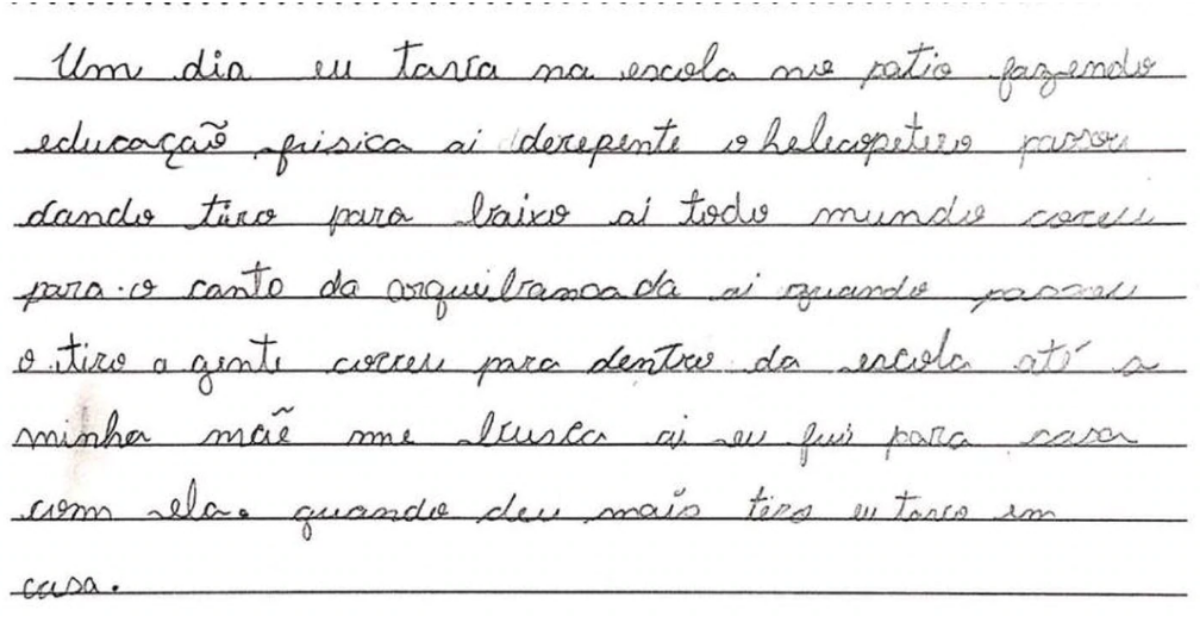 Um dia eu tava na escola no patio fazendo
educação fisica ai derepente o helecopetero passou
dando tiro para baixo ai todo mundo correu
para o canto da arquibancada ai quando passou
o tiro a gente correu para dentro da escola até a
minha mãe me busca ai eu fui para casa
com ela. quando deu mais tiro eu tava em
casa.